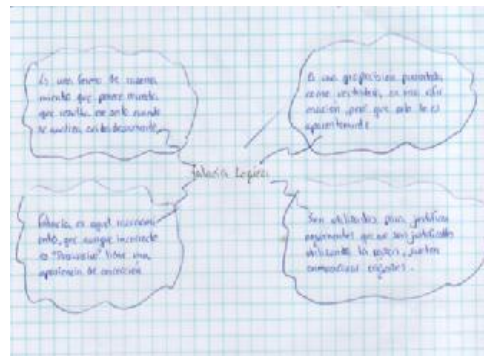 Es una forma de razona
miento que parece
que resulta, no serlo cuando
se analiza cuidadosamente.
Es una proposición presentada
como verdadera, es una afir
mación, pero que solo lo es
aparentemente
Falacia Logica
Falacia, es aquel razonami
ento, que aunque incorrecto
es "Persuasivo" tiene una
apariencia de corrección
Son utilizadas para justificar
argumentos que no son justificables
utilizando la razón, suelen
engaños.